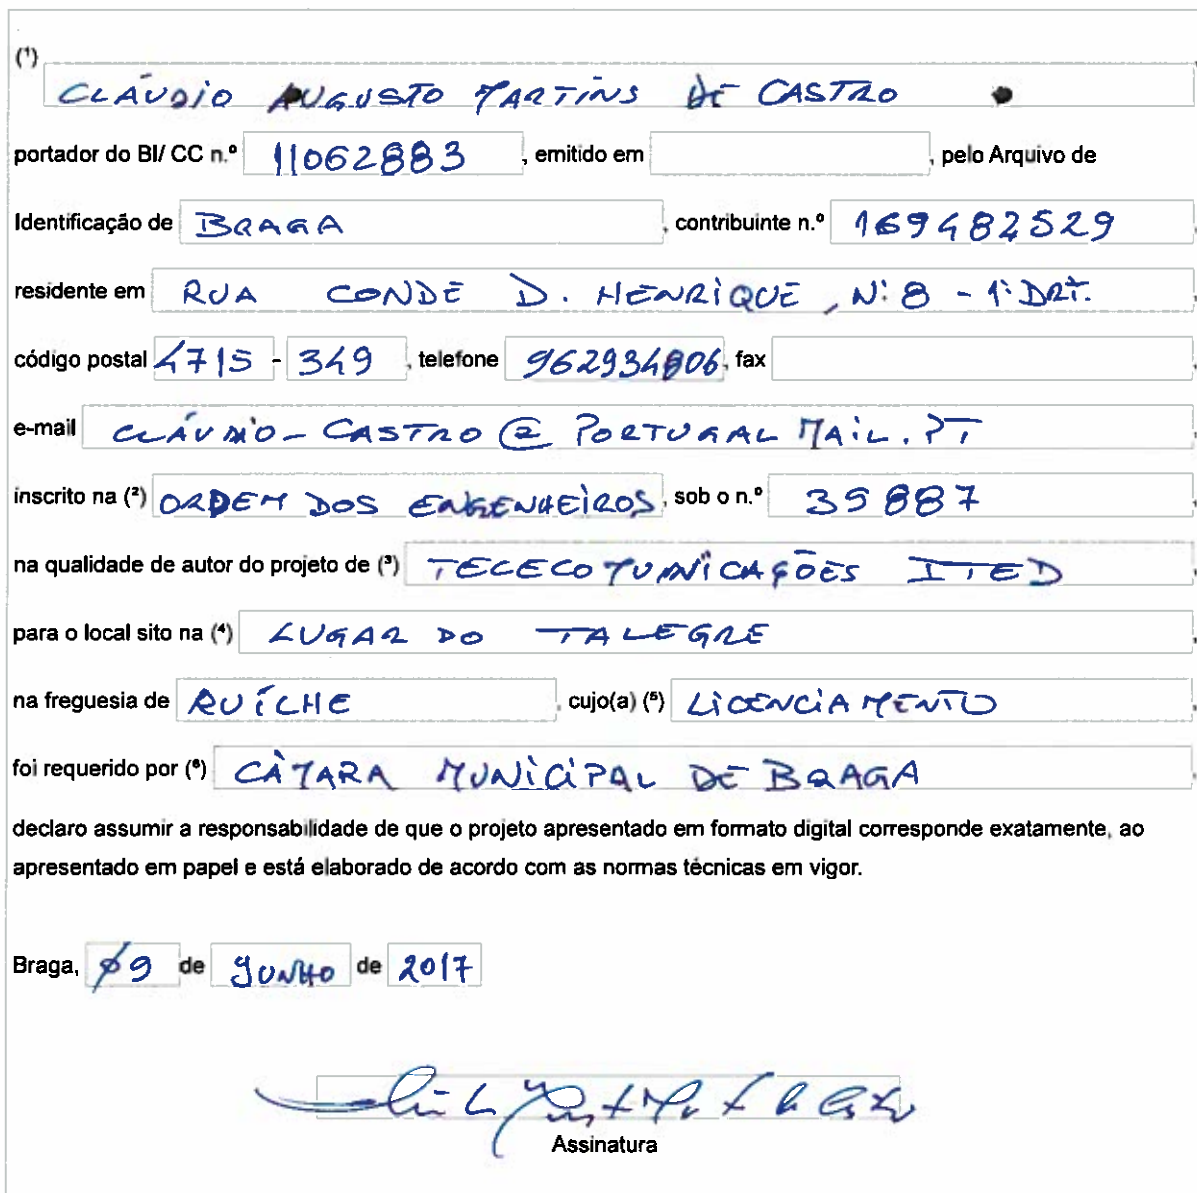 (¹)
CLÁUDIO AUGUSTO MARTINS DE CASTRO
portador do BI/ CC n.º 11062883, emitido em , pelo Arquivo de
Identificação de BRAGA, contribuinte n.º 169482529,
residente em RUA CONDE D. HENRIQUE, Nº 8 - 1º DRT.,
código postal 4715 - 349, telefone 962934806, fax ,
e-mail CLÁUDIO-CASTRO@PORTUGALMAIL.PT,
inscrito na (²) ORDEM DOS ENGENHEIROS, sob o n.º 39887,
na qualidade de autor do projeto de (³) TELECOMUNICAÇÕES ITED,
para o local sito na (⁴) LUGAR DO TALEGRE,
na freguesia de RUÍLHE, cujo(a) (⁵) LICENCIAMENTO,
foi requerido por (⁶) CÂMARA MUNICIPAL DE BRAGA,
declaro assumir a responsabilidade de que o projeto apresentado em formato digital corresponde exatamente, ao
apresentado em papel e está elaborado de acordo com as normas técnicas em vigor.
Braga, 09 de JUNHO de 2017
Assinatura